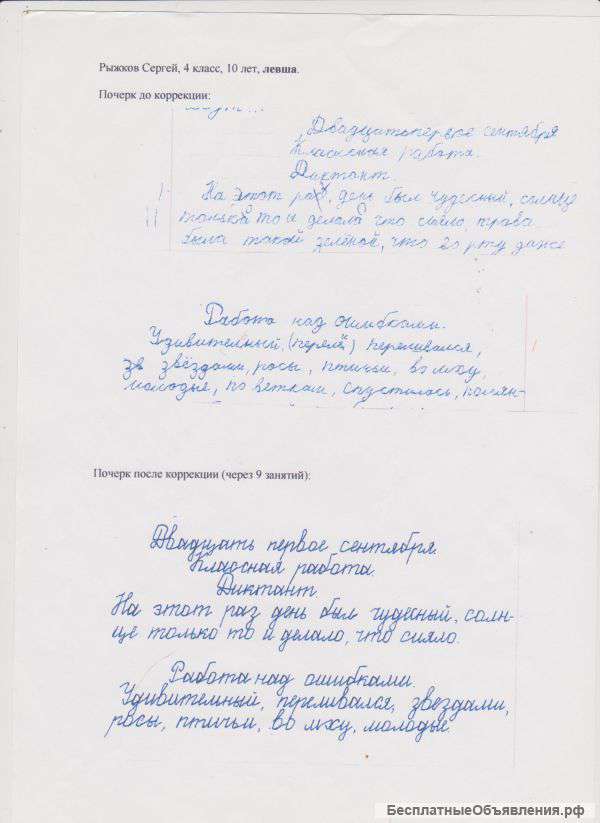 Рыжков Сергей, 4 класс, 10 лет, левша.
Почерк до коррекции:
Двадцатопервое сентября
Классная работа.
Диктант.
На этот раз, день был чудесный, солнце
только то и делала что сияло, трава
была такой зелёной, что даже
Работа над ошибками.
Удивительный, (перелё) переливался,
зв звёздами, росы, птичьи, во мху,
молодые, по веткам, спустилось, полян-
Почерк после коррекции (через 9 занятий):
Двадцать первое сентября.
Классная работа.
Диктант.
На этот раз день был чудесный, солн-
це только то и делало, что сияло.
Работа над ошибками.
Удивительный, переливался, звездами,
росы, птичьи, во мху, молодые.
БесплатныеОбъявления.рф